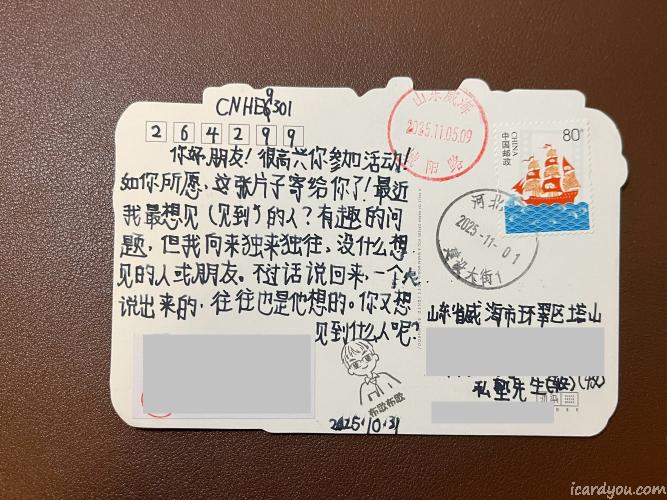 CNHE9301
264299
你好,朋友!很高兴你参加活动!
如你所愿,这张片子寄给你了!最近
我最想见(见到)的人?有趣的问
题,但我向来独来独往,没什么想
见的人或朋友。不过话说回来,一个人
说出来的,往往也是他想的。你又想
见到什么人呢?
布歌布歌
2025.10.31
山东威海
2025.11.05.09
80分
中国邮政
CHINA
河北
2025.11.01
建设大街1
山东省威海市环翠区塔山
私塾先生(收)(收)
icardyou.com